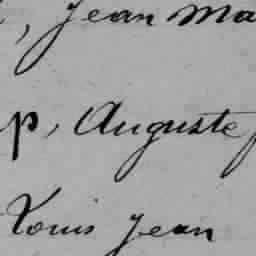 , Jean Ma
p, Auguste
Louis Jean